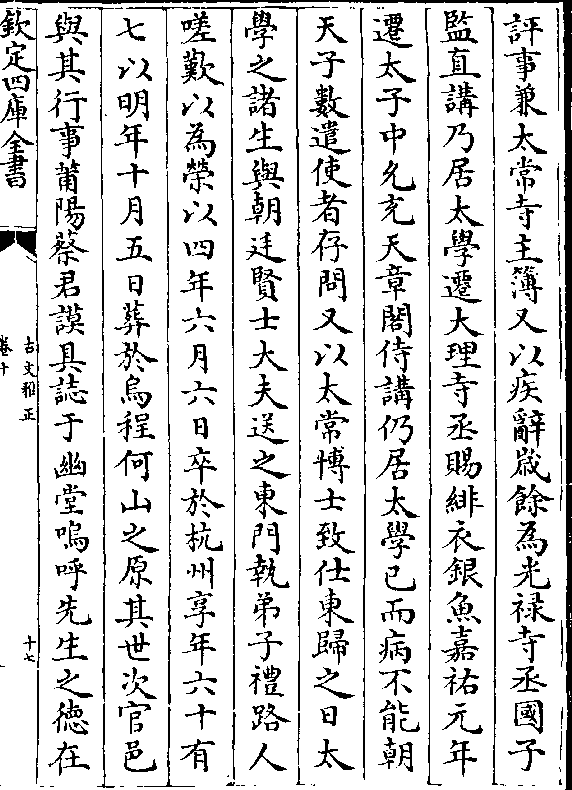 評事兼太常寺主簿又以疾辭歳餘為光禄寺丞國子
監直講乃居太學遷大理寺丞賜緋衣銀魚嘉祐元年
遷太子中允充天章閣侍講仍居太學已而病不能朝
天子數遣使者存問又以太常博士致仕東歸之日太
學之諸生與朝廷賢士大夫送之東門執弟子禮路人
嗟歎以為榮以四年六月六日卒於杭州享年六十有
七以明年十月五日葬於烏程何山之原其世次官邑
與其行事莆陽蔡君謨具誌于幽堂嗚呼先生之德在
欽定四庫全書
古文雅正
卷十
十七